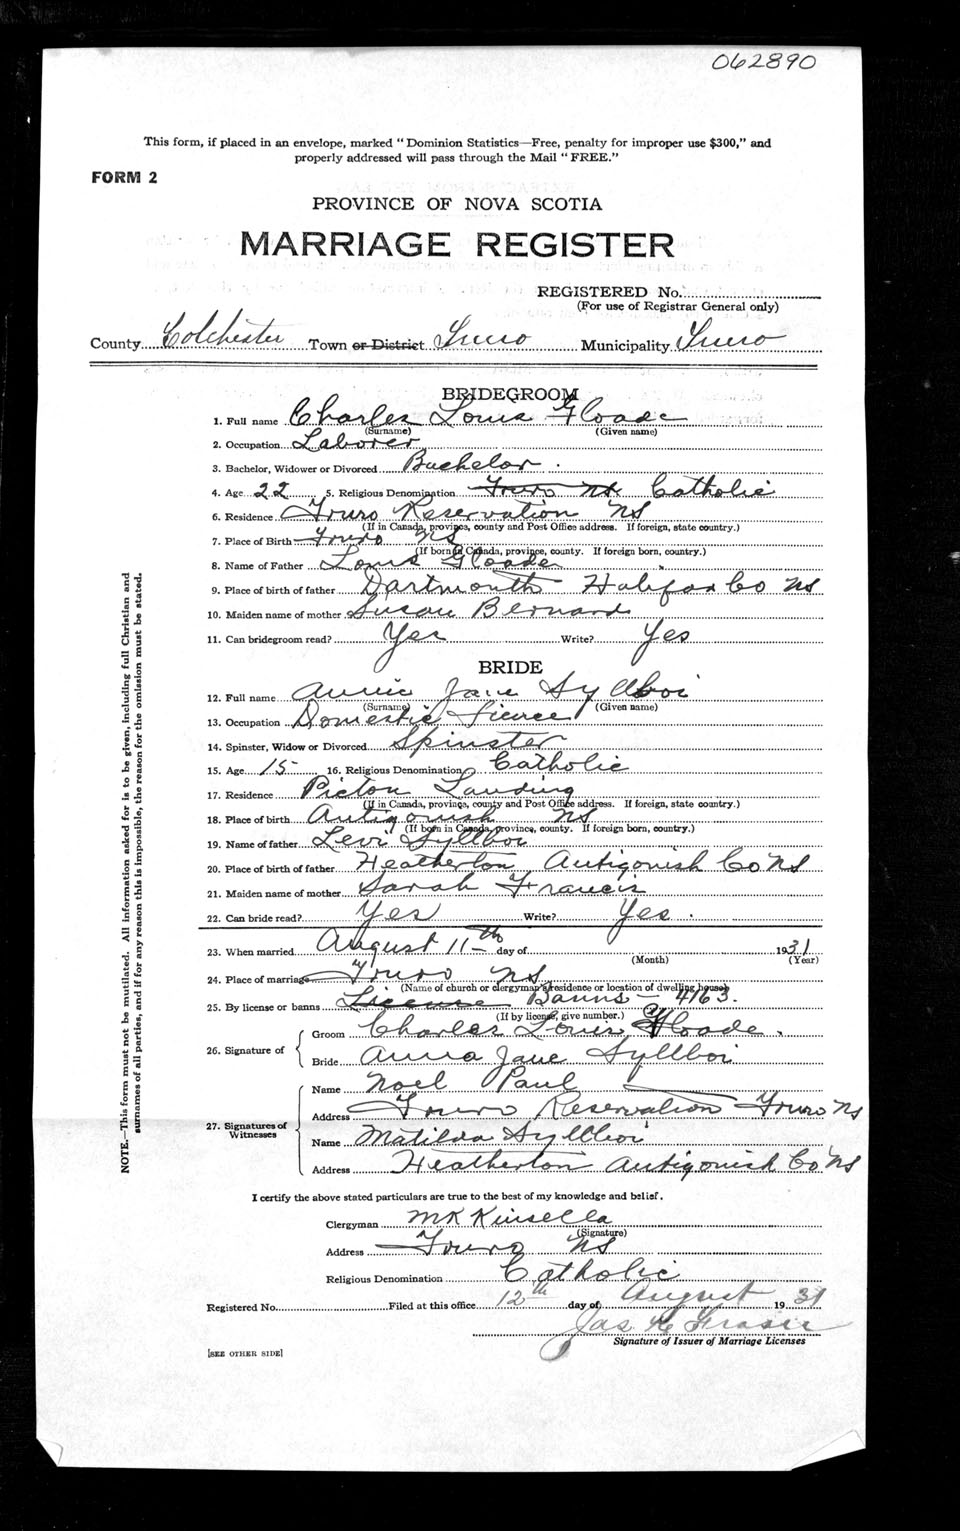 062890
This form, if placed in an envelope, marked "Dominion Statistics—Free, penalty for improper use $300," and
properly addressed will pass through the Mail "FREE."
FORM 2
PROVINCE OF NOVA SCOTIA
MARRIAGE REGISTER
REGISTERED No.
(For use of Registrar General only)
County Colchester Town or District Truro Municipality Truro
BRIDEGROOM
1. Full name Charles Louis Gloade
(Surname) (Given name)
2. Occupation Laborer
3. Bachelor, Widower or Divorced Bachelor
4. Age 22 5. Religious Denomination Truro NS Catholic
6. Residence Truro Reservation NS
(If in Canada, province, county and Post Office address. If foreign, state country.)
7. Place of Birth Truro NS
(If born in Canada, province, county. If foreign born, country.)
8. Name of Father Louis Gloade
9. Place of birth of father Dartmouth Halifax Co NS
10. Maiden name of mother Susan Bernard
11. Can bridegroom read? Yes Write? Yes
BRIDE
12. Full name Annie Jane Syllboi
(Surname) (Given name)
13. Occupation Domestic
14. Spinster, Widow or Divorced Spinster
15. Age 15 16. Religious Denomination Catholic
17. Residence Picton Landing
(If in Canada, province, county and Post Office address. If foreign, state country.)
18. Place of birth Antigonish NS
(If born in Canada, province, county. If foreign born, country.)
19. Name of father Levi Syllboi
20. Place of birth of father Heatherton Antigonish Co NS
21. Maiden name of mother Sarah Francis
22. Can bride read? Yes Write? Yes.
23. When married August 11th day of 1931
(Month) (Year)
24. Place of marriage Truro NS
(Name of church or clergyman's residence or location of dwelling house)
25. By license or banns License Banns — 4163.
(If by license, give number.)
26. Signature of
Groom Charles Louis Gloade.
Bride Anna Jane Syllboi
27. Signatures of Witnesses
Name Noel Paul
Address Truro Reservation Truro NS
Name Matilda Syllboi
Address Heatherton Antigonish Co NS
I certify the above stated particulars are true to the best of my knowledge and belief.
Clergyman MK Kinsella
(Signature)
Address Truro NS
Religious Denomination Catholic
Registered No. Filed at this office 12th day of August 1931
Jas Fraser
Signature of Issuer of Marriage Licenses
[SEE OTHER SIDE]
NOTE.—This form must not be mutilated. All information asked for is to be given, including full Christian and
surnames of all parties, and if for any reason this is impossible, the reason for the omission must be stated.